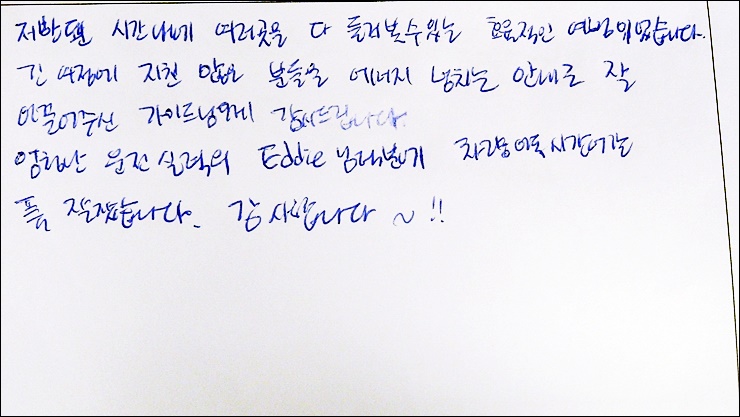 제한된 시간내에 여러곳을 다 둘러볼수있는 효율적인 여행이었습니다.
긴 여정에 지친 많은 분들을 에너지 넘치는 안내로 잘
이끌어주신 가이드님에게 감사드립니다.
운전 실력의 Eddie 님덕분에 차량이동시간에는
푹 잘잤습니다. 감사합니다 ~ !!